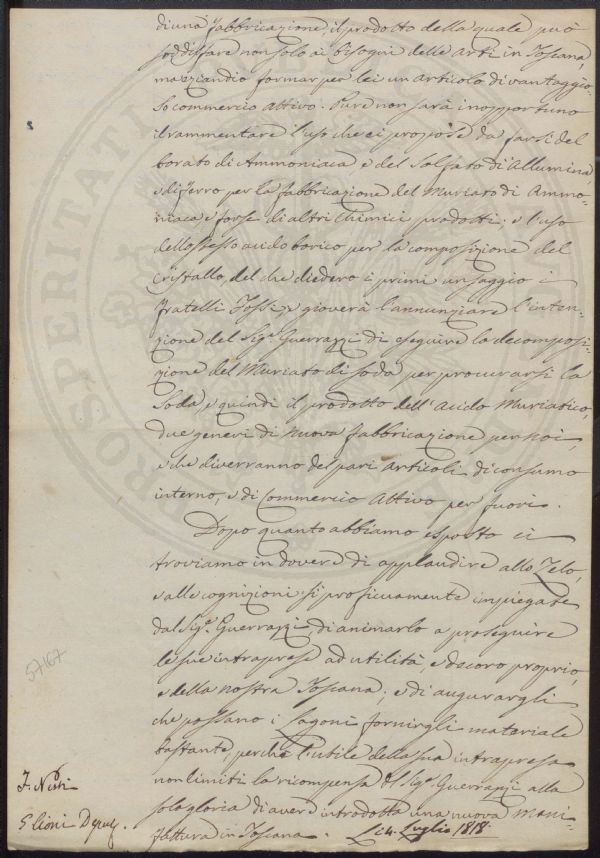 di una fabbricazione, il prodotto della quale può
soddisfare non solo ai bisogni delle Arti in Toscana,
ma eziandio formar per lei un articolo di vantaggio-
so commercio attivo. Pure non sarà inopportuno
il rammentare l'uso che ci propose da farsi del
borato di Ammoniaca, e del Solfato di Allumina,
e di ferro per la fabbricazione del Muriato di Ammo-
niaca, e forse di altri Chimici prodotti; e l'uso
dello stesso acido borico per la composizione del
Cristallo, del che diedero i primi un saggio i
fratelli Fossi, e gioverà l'annunziare l'inten-
zione del Sigr. Guerrazzi di eseguire la decomposi-
zione del Muriato di Soda per procurarsi la
Soda, e quindi il prodotto dell'Acido Muriatico,
due generi di nuova fabbricazione per noi,
e che diverranno del pari articoli di consumo
interno, e di Commercio Attivo per fuori.
Dopo quanto abbiamo esposto ci
troviamo in dovere di applaudire allo Zelo,
e alle cognizioni sì proficuamente impiegate
dal Sigr. Guerrazzi, di animarlo a proseguire
le sue intraprese ad utilità, e decoro proprio,
e della nostra Toscana; e di augurargli
che possano i Lagoni fornirgli materiale
bastante, perché l'utile della sua intrapresa
non limiti la ricompensa del Sigr. Guerrazzi alla
sola gloria di avere introdotta una nuova Mani-
fattura in Toscana. Li 4. Luglio 1818.
57167
F. Nesti
Deput.
PROSPERITATI